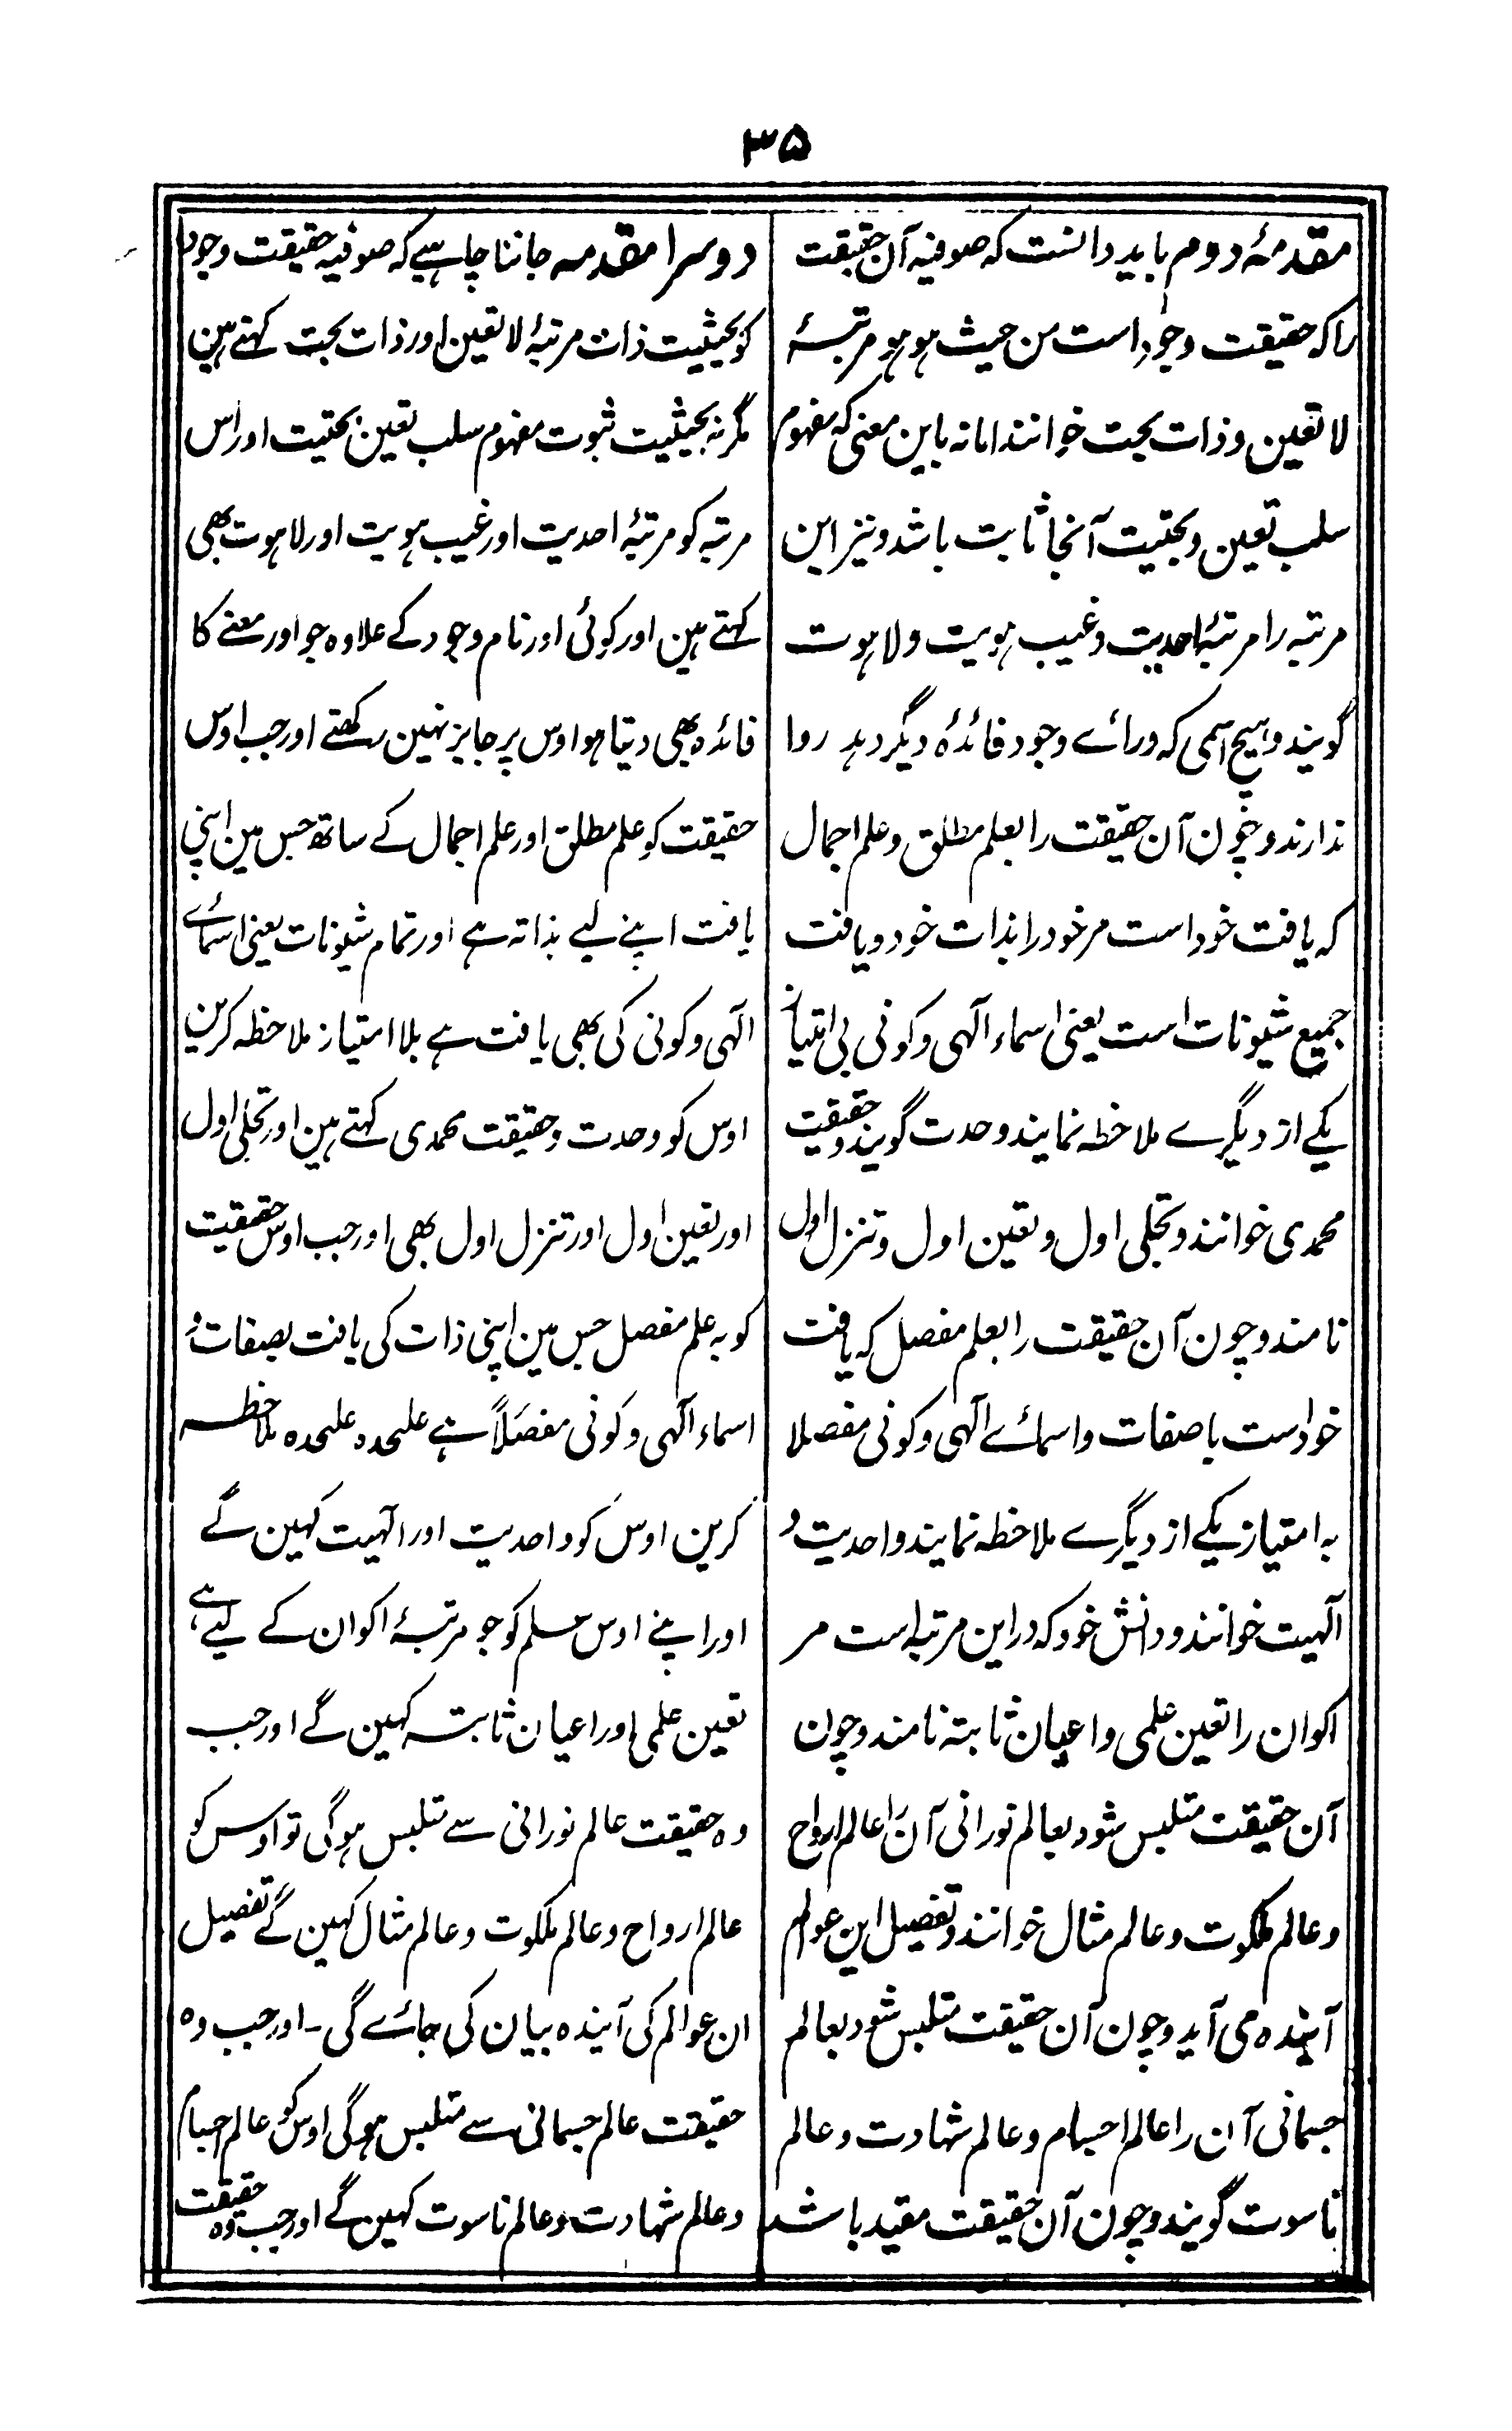 ۳۵
مقدمۂ دوم باید دانست کہ صوفیہ آن حقیقت
را کہ حقیقت وجود است من حیث ہو ہو مرتبۂ
لا تعین و ذات بحت خوانند اما نہ باین معنی کہ مفہوم
سلب تعین و بحتیت آنجا ثابت باشد و نیز این
مرتبہ را مرتبۂ احدیت و غیب ہویت و لاہوت
گویند و ہیچ اسمی کہ ورائے وجود فائدۂ دیگر دہد روا
ندارند و چون آن حقیقت را بعلم مطلق و علم اجمال
کہ یافت خود است مر خود را بذات خود و یافت
جمیع شیونات است یعنی اسماء الٓہی و کونی بی امتیاز
یکے از دیگرے ملاحظہ نمایند وحدت گویند و حقیقت
محمدی خوانند و تجلی اول و تعین اول و تنزل اول
نامند و چون آن حقیقت را بعلم مفصل کہ یافت
خود است با صفات و اسمائے الٓہی و کونی مفصلا
بہ امتیاز یکے از دیگرے ملاحظہ نمایند واحدیت و
الٓہیت خوانند و دانش خود کہ دراین مرتبہ است مر
اکوان را تعین علمی و اعیان ثابتہ نامند و چون
آن حقیقت متلبس شود بعالم نورانی آن را عالم ارواح
و عالم ملکوت و عالم مثال خوانند و تفصیل این عوالم
آیندہ می آید و چون آن حقیقت متلبس شود بعالم
جسمانی آن را عالم اجسام و عالم شہادت و عالم
ناسوت گویند و چون آن حقیقت مقید باشد
دوسرا مقدمہ جاننا چاہیے کہ صوفیہ حقیقت وجود
کو بحیثیت ذات مرتبۂ لا تعین اور ذات بحت کہتے ہین
مگر نہ بحیثیت ثبوت مفہوم سلب تعین بحتیت اور اس
مرتبہ کو مرتبۂ احدیت اور غیب ہویت اور لاہوت بھی
کہتے ہین اور کوئی اور نام وجود کے علاوہ جو اور معنے کا
فائدہ بھی دیتا ہو اوس پر جایز نہین رکھتے اور جب اوس
حقیقت کو علم مطلق اور علم اجمال کے ساتھ جس مین اپنی
یافت اپنے لیے بذاتہ ہے اور تمام شیونات یعنی اسمائے
الٓہی و کونی کی بھی یافت ہے بلا امتیاز ملاحظہ کرین
اوس کو وحدت و حقیقت محمدی کہتے ہین اور تجلی اول
اور تعین اول اور تنزل اول بھی اور جب اوس حقیقت
کو بہ علم مفصل جس مین اپنی ذات کی یافت بصفات و
اسماء الٓہی و کونی مفصلاً ہے علحدہ علحدہ ملاحظہ
کرین اوس کو واحدیت اور الٓہیت کہین گے
اور اپنے اوس علم کو جو مرتبۂ اکوان کے لیے ہے
تعین علمی اور اعیان ثابتہ کہین گے اور جب
وہ حقیقت عالم نورانی سے متلبس ہوگی تو اوس کو
عالم ارواح و عالم ملکوت و عالم مثال کہین گے تفصیل
ان عوالم کی آیندہ بیان کی جائے گی ۔ اور جب وہ
حقیقت عالم جسمانی سے متلبس ہوگی اوس کو عالم اجسام
و عالم شہادت و عالم ناسوت کہین گے اور جب وہ حقیقت